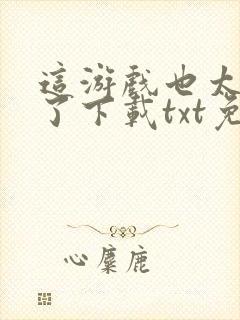 這游戲也太
了下載txt免
心麋鹿